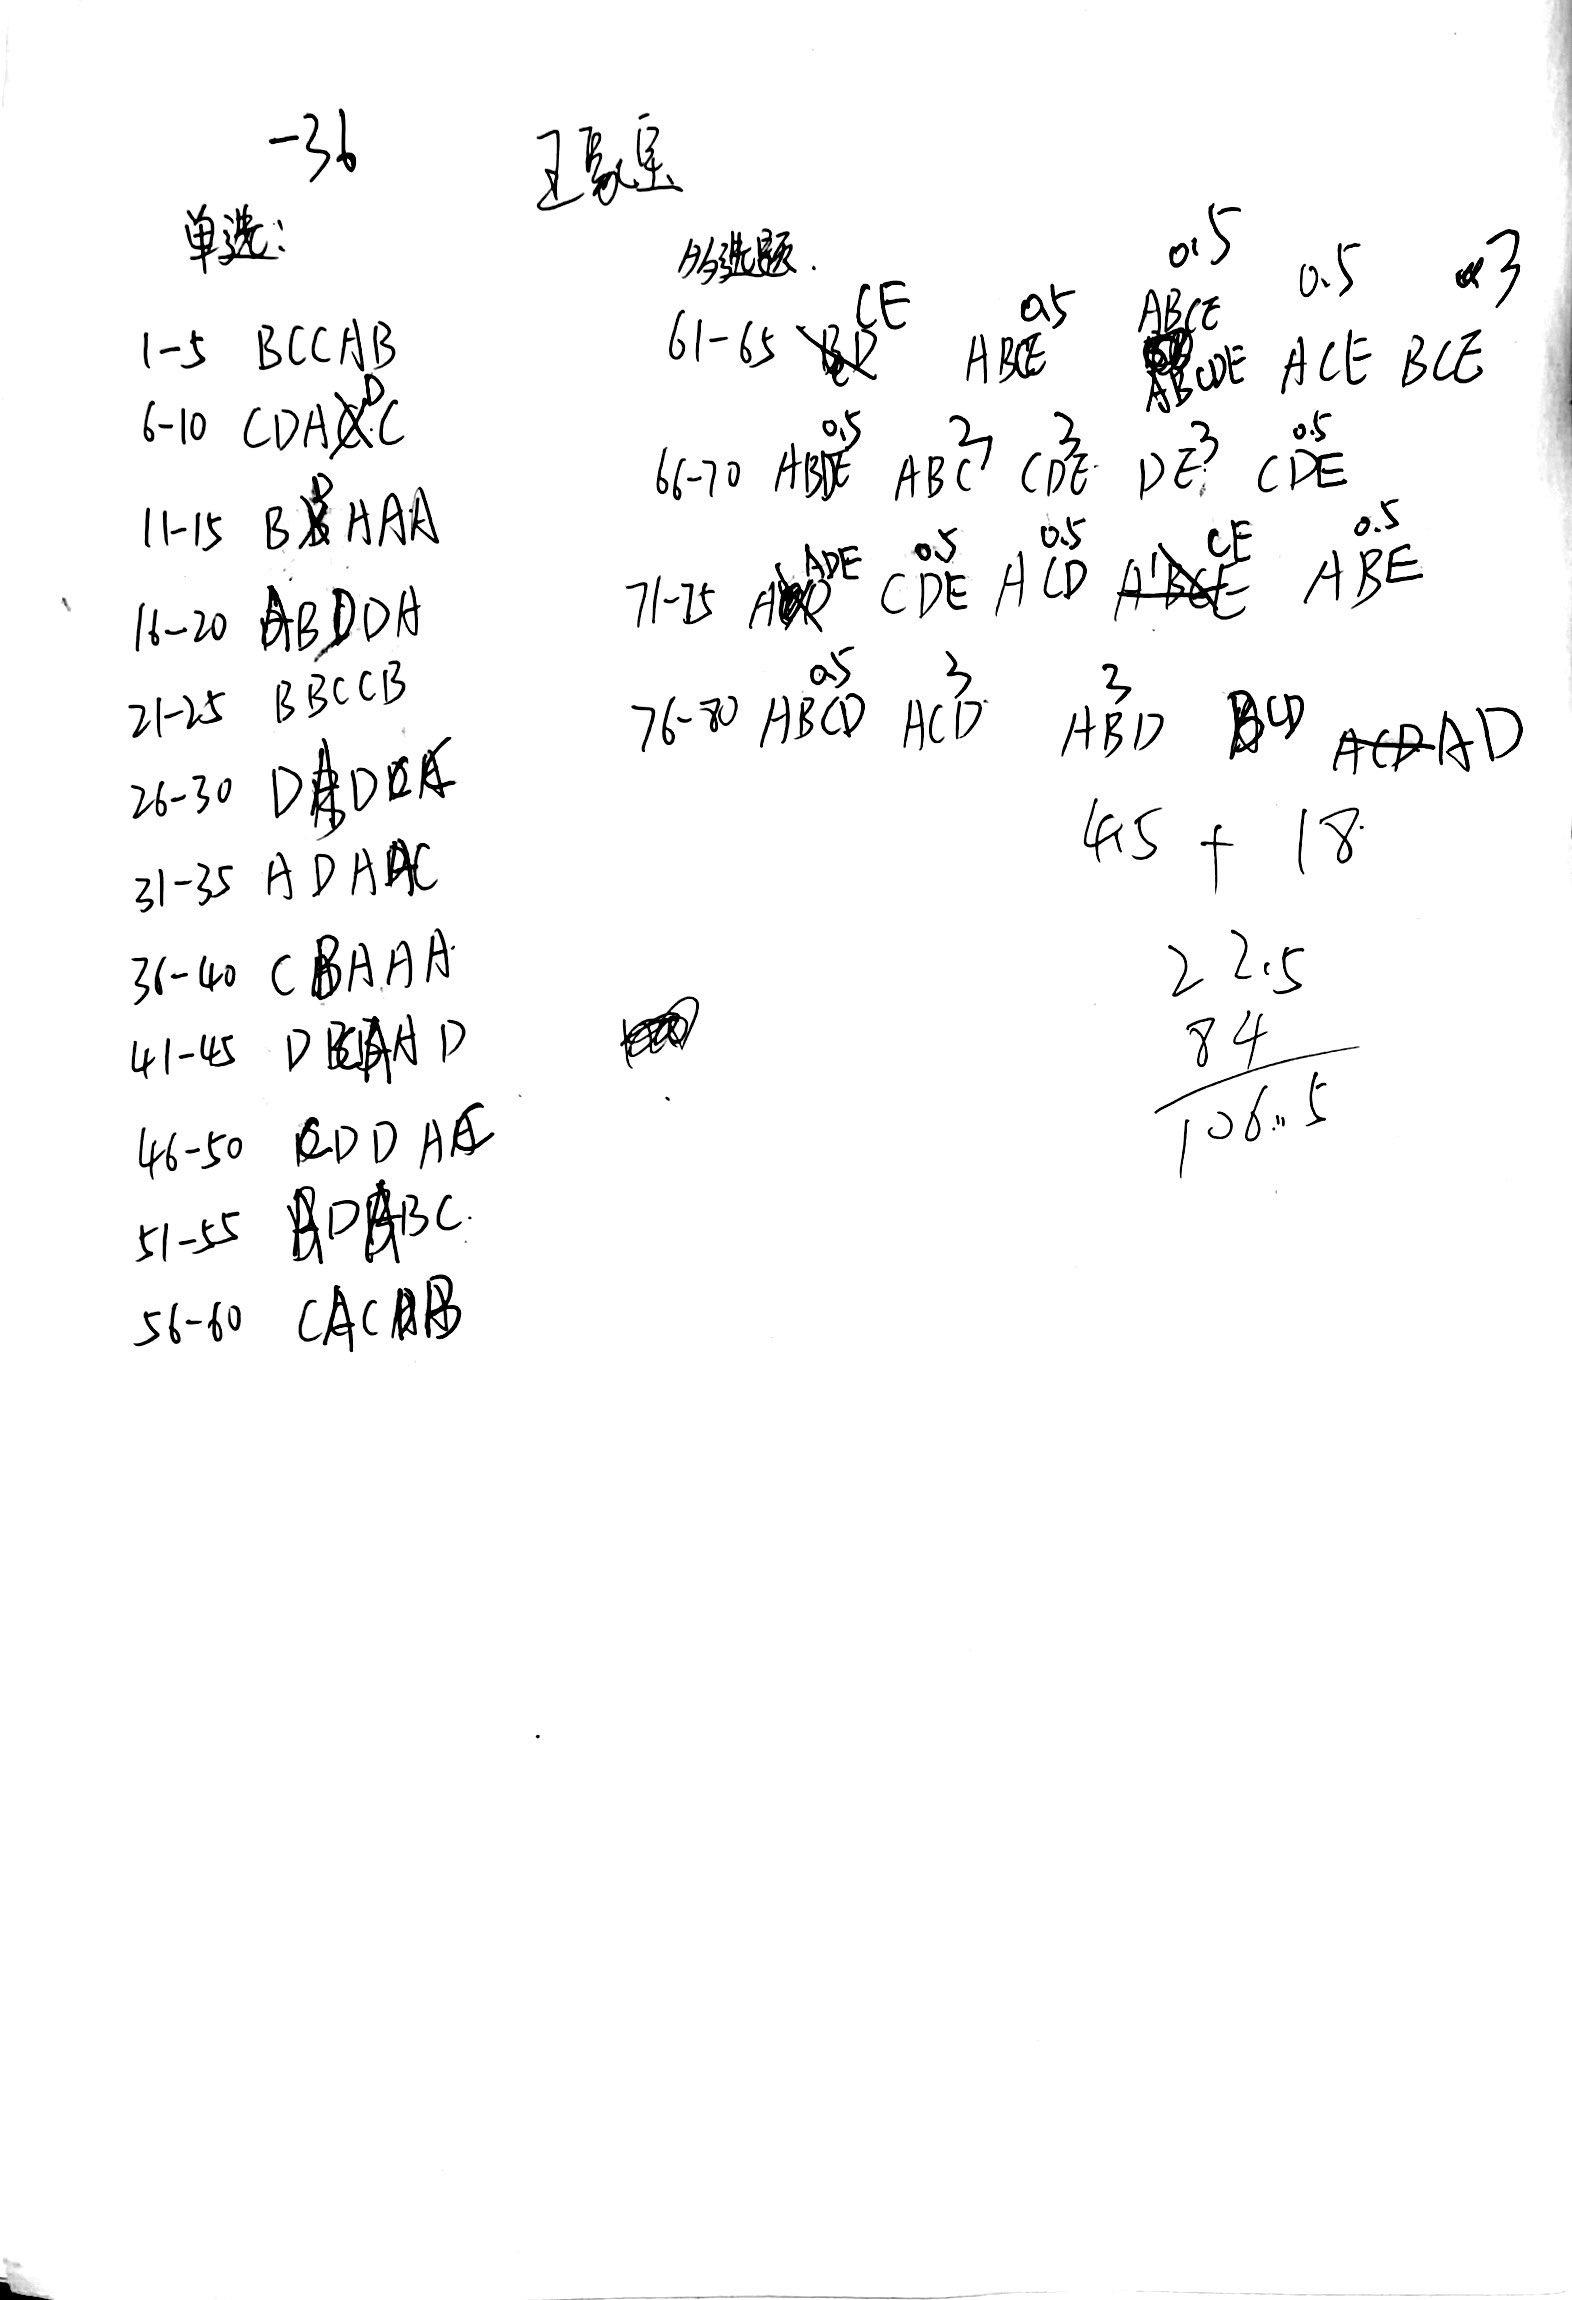 -36
单选:
1-5 BCCAB
6-10 CDADC
11-15 BDAAA
16-20 ABDDA
21-25 BBCCB
26-30 DAD
31-35 ADAAC
36-40 CBAAA
41-45 D AD
46-50 CDDA
51-55 D BC.
56-60 CAC B
多选题.
0.5 0.5 3
CE 0.5 ABCE
61-65 ABCE ABCDE ACE BCE
0.5 3 3 3 0.5
66-70 ABDE ABC CDE DE CDE
ADE 0.5 0.5 CE 0.5
71-75 A CDE ACD ABCE ABE
0.5 3 3
76-80 ABCD ACD ABD BCD ACD AD
4.5 + 18
22.5
84
106.5